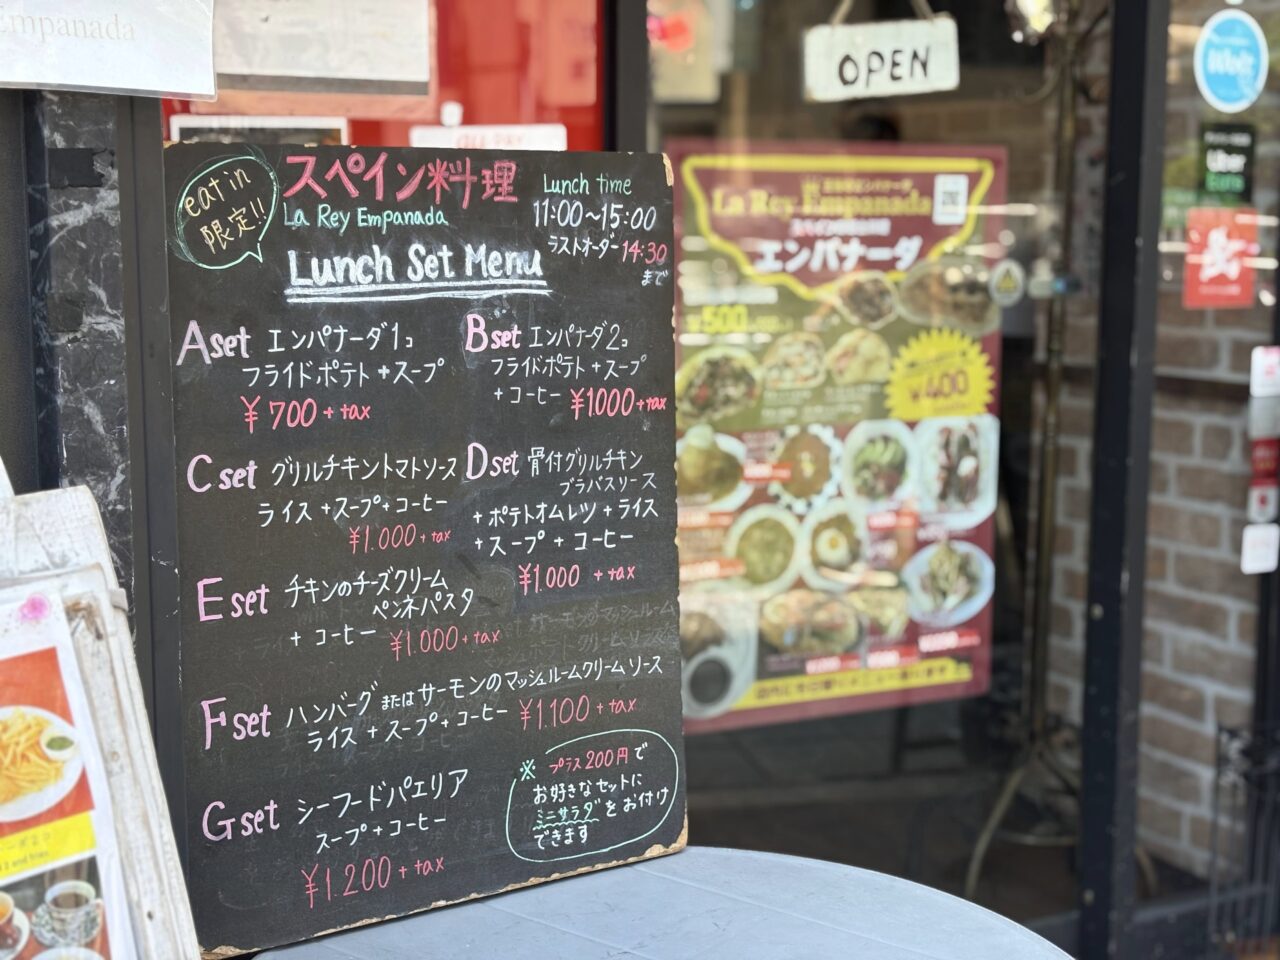 Empanada
OPEN
eat in
限定!!
スペイン料理
La Rey Empanada
Lunch time
11:00~15:00
ラストオーダー 14:30
まで
Lunch Set Menu
A set エンパナーダ1コ
フライドポテト+スープ
¥700+tax
B set エンパナーダ2コ
フライドポテト+スープ
+コーヒー ¥1.000+tax
C set グリルチキントマトソース
ライス+スープ+コーヒー
¥1.000+tax
D set 骨付グリルチキン
ブラバスソース
+ポテトオムレツ+ライス
+スープ+コーヒー
¥1.000 +tax
E set チキンのチーズクリーム
ペンネパスタ
+コーヒー ¥1.000+tax
F set ハンバーグまたはサーモンのマッシュルームクリームソース
ライス+スープ+コーヒー ¥1.100+tax
G set シーフードパエリア
スープ+コーヒー
¥1.200+tax
※プラス200円で
お好きなセットに
ミニサラダをお付け
できます
La Rey Empanada
エンパナーダ
¥500
¥400
Wolt
Uber
Eats